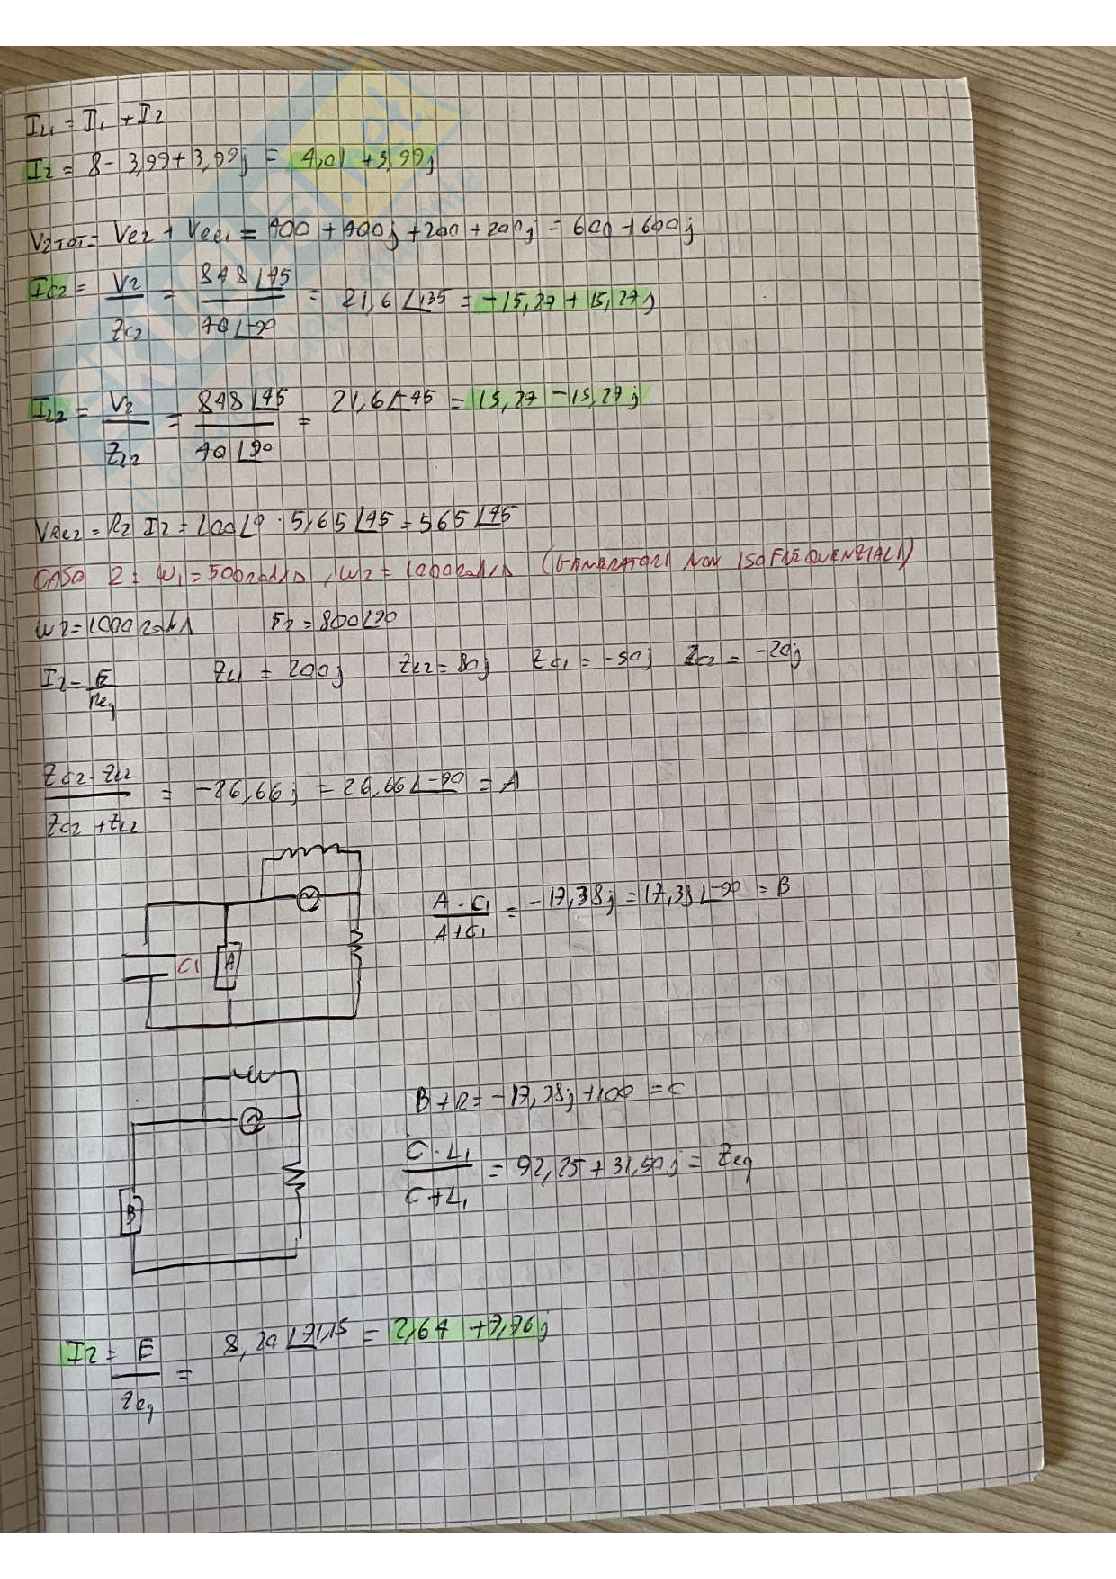 IL1 = I1 + I2
I2 = 8 - 3,99 + 3,99j = 4,01 + 3,99j
V2TOT = VE2 + VEC1 = 400 + 400j + 200 + 200j = 600 + 600j
IC2 = V2/ZC2 = 848∠45/40∠-90 = 21,6∠135 = -15,27 + 15,27j
IL2 = V2/ZL2 = 848∠45/40∠90 = 21,6∠-45 = 15,27 - 15,27j
VRE2 = R2 I2 = 100∠0 · 5,65∠45 = 565∠45
CASO 2 = W1 = 500 rad/s, W2 = 1000 rad/s (GENERATORI NON ISOFREQUENZIALI)
W2 = 1000 rad/s E2 = 800∠90
I2 = E/Req ZL1 = 200j ZL2 = 80j ZC1 = -50j ZC2 = -20j
ZC2 · ZL2/ZC2 + ZL2 = -26,66j = 26,66∠-90 = A
A · C1/A + C1 = -17,38j = 17,38∠-90 = B
C1 A
B + R = -17,38j + 100 = C
C · L1/C + L1 = 92,25 + 31,50j = Zeq
B
I2 = E/Zeq = 8,20∠71,15 = 2,64 + 7,76j